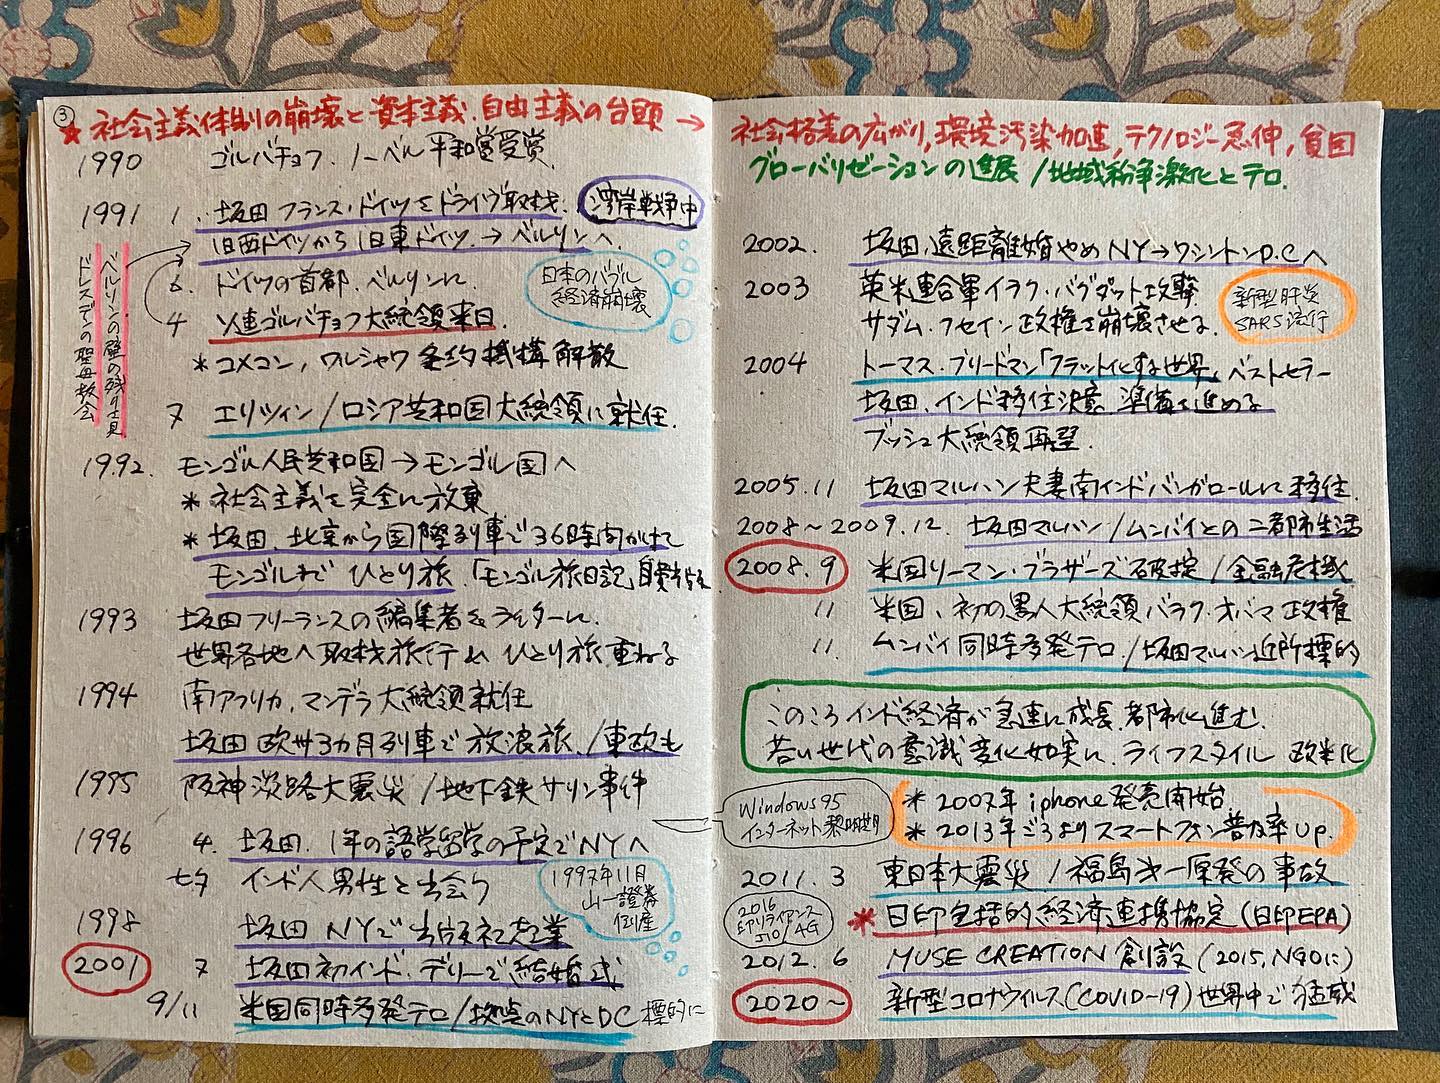 ③
★ 社会主義体制の崩壊と資本主義.自由主義の台頭 →
1990 ゴルバチョフ.ノーベル平和賞受賞.
1991 1. 坂田フランス・ドイツをドライヴ取材. 湾岸戦争中
旧西ドイツから旧東ドイツ.→ベルリンへ.
6. ドイツの首都.ベルリンに
日本のバブル
経済崩壊
4 ソ連ゴルバチョフ大統領来日.
ベルリンの壁の残り
ドレスデンの聖母教会
*コメコン,ワルシャワ条約機構解散
7 エリツィン/ロシア共和国大統領に就任.
1992. モンゴル人民共和国→モンゴル国へ
*社会主義を完全に放棄
*坂田.北京から国際列車で36時間かけて
モンゴルまで ひとり旅「モンゴル旅日記」自費
1993 坂田フリーランスの編集者&ライターに.
世界各地へ取材旅行& ひとり旅重ねる
1994 南アフリカ.マンデラ大統領就任
坂田欧州3カ月列車で放浪旅./東欧も
1995 阪神淡路大震災/地下鉄サリン事件
1996 4. 坂田.1年の語学留学の予定でNYへ
七夕 インド人男性と出会う
1997年11月
山一證券
倒産
1998 坂田NYで出版社起業
2001 7 坂田初インド・デリーで結婚式
9/11 米国同時多発テロ/拠点のNYとDC標的に
社会格差の広がり,環境汚染加速,テクノロジー急伸,貧困
グローバリゼーションの進展/地域紛争激化とテロ.
2002. 坂田.遠距離婚やめNY→ワシントンD.C.へ
2003 英米連合軍イラク・バグダット攻撃
サダム.フセイン政権を崩壊させる.
新型肺炎
SARS流行
2004 トーマス.フリードマン「フラット化する世界」ベストセラー
坂田.インド移住決意.準備を進める
ブッシュ大統領再選.
2005.11 坂田マルハン夫妻南インドバンガロールに移住.
2008~2009.12. 坂田マルハン/ムンバイとの二都市生活
2008.9 米国リーマン・ブラザーズ破綻/金融危機
11 米国、初の黒人大統領バラク.オバマ政権
11. ムンバイ同時多発テロ/坂田マルハン近所標的
このころインド経済が急速に成長.都市化進む.
若い世代の意識変化如実に.ライフスタイル 欧米化
Windows95
インターネット黎明期
*2007年iphone発売開始.
*2013年ごろよりスマートフォン普及率up.
2011.3 東日本大震災/福島第一原発の事故
2016
印リライアンス
JIO/4G
*日印包括的経済連携協定(日印EPA)
2012.6 MUSE CREATION創設(2015,NGOに)
2020~ 新型コロナウイルス(COVID-19)世界中で猛威